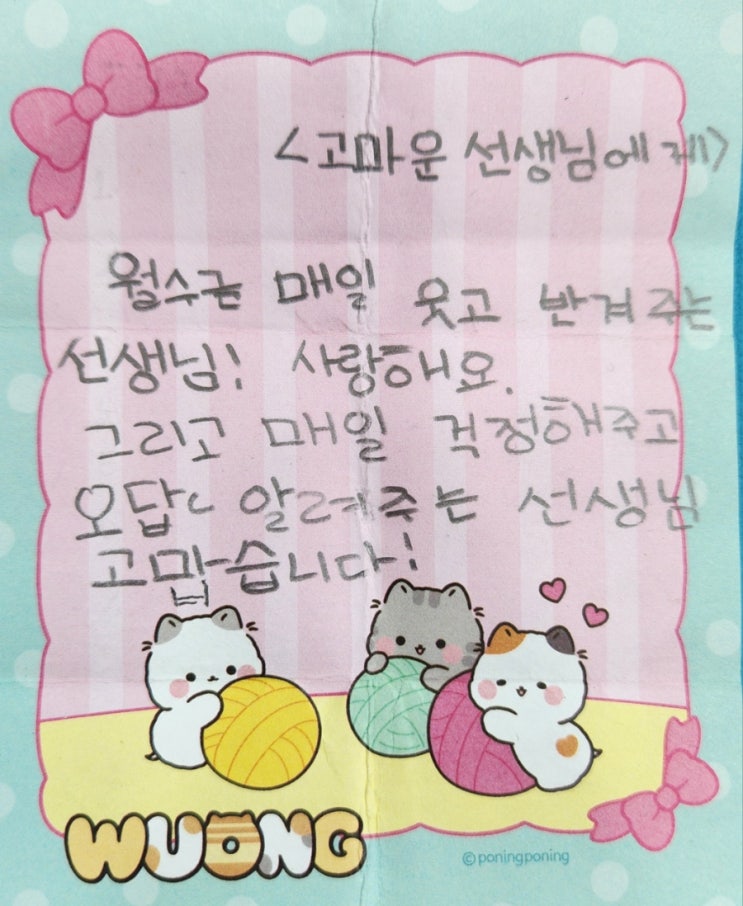 <고마운 선생님에게>
월수금 매일 웃고 반겨주는
선생님! 사랑해요.
그리고 매일 걱정해주고
오답 알려주는 선생님
고맙습니다!
WUONG
©poningponing